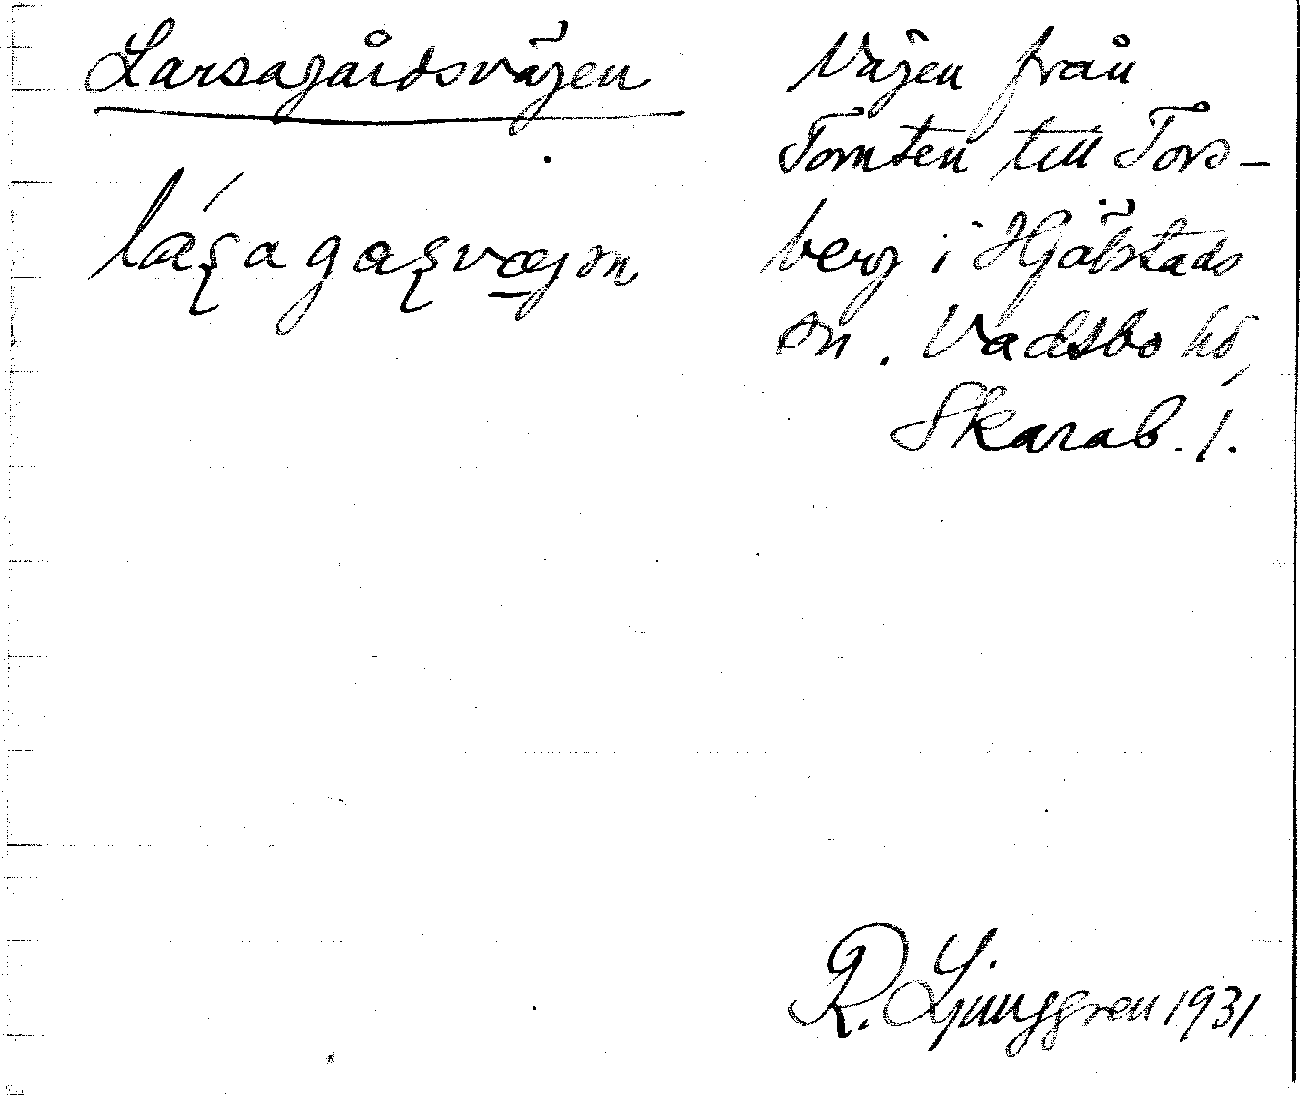 Larsagårdsvägen
Vägen från
Tomten till Tors-
berg i Hjälstads
sn. Vadsbo hd,
Skarab. l.
R. Ljunggren 1931